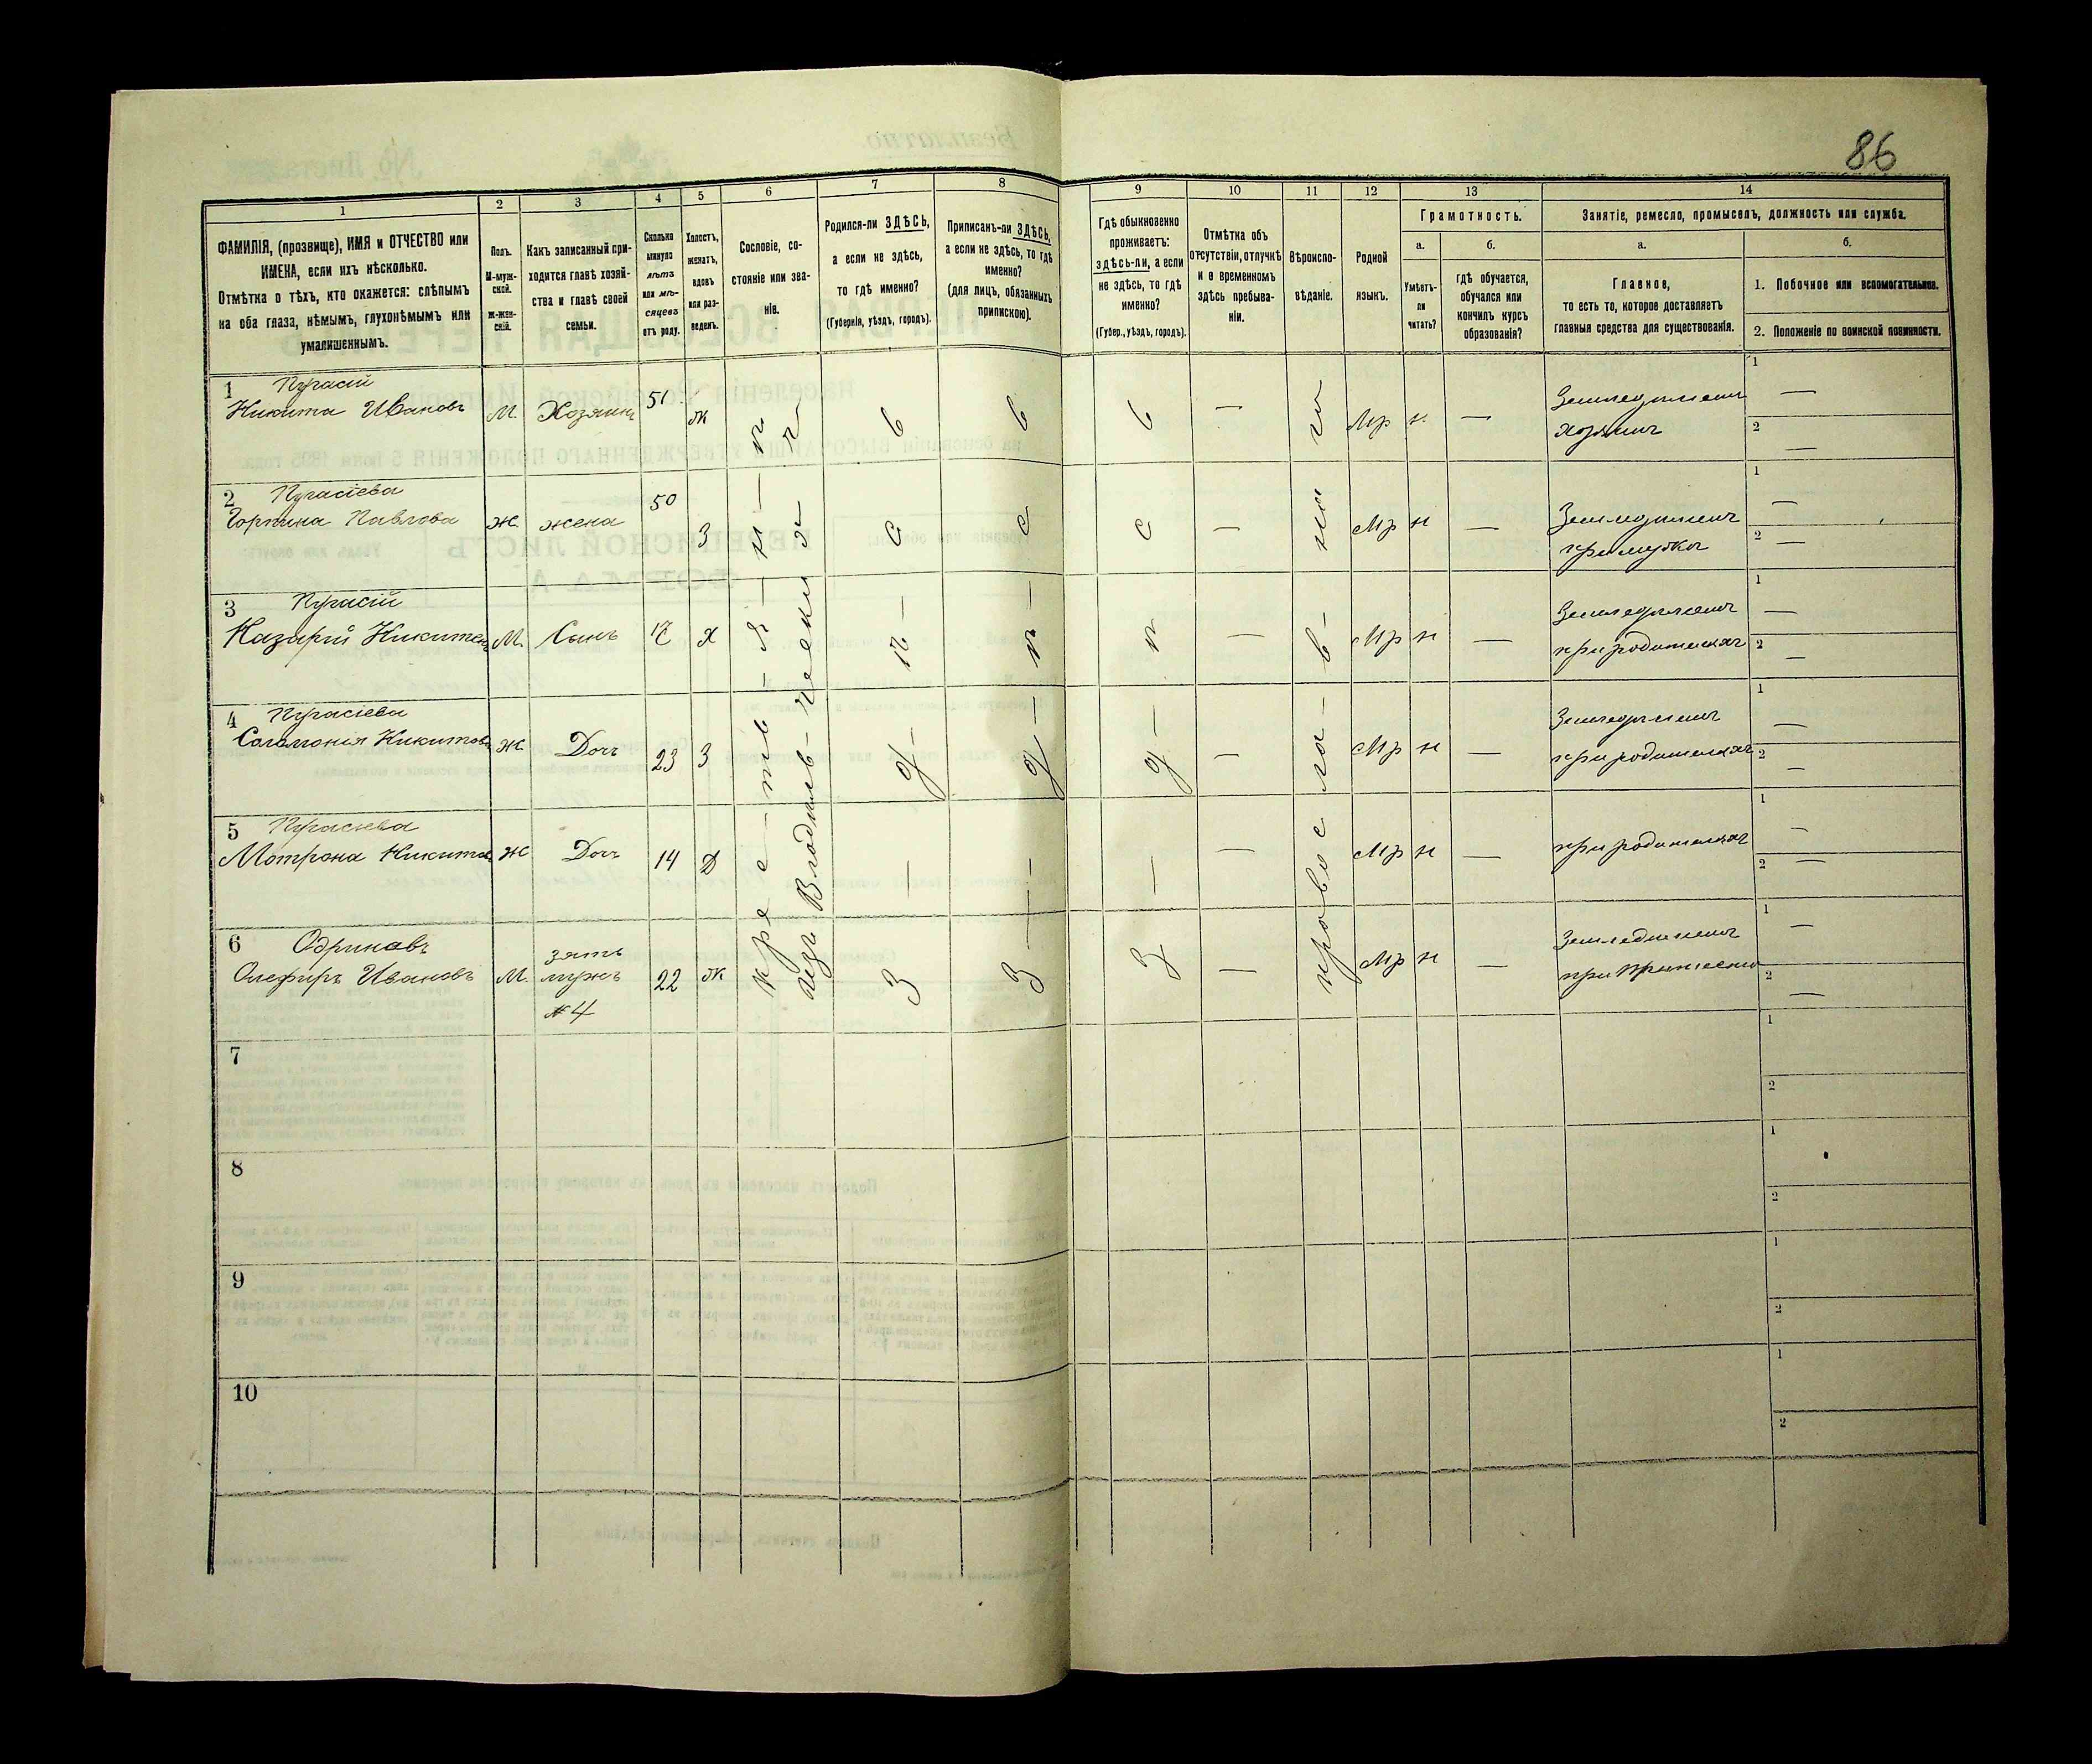 86
1
2
3
4
5
6
7
8
9
10
11
12
13
14
ФАМИЛІЯ, (прозвище), ИМЯ и ОТЧЕСТВО или
ИМЕНА, если ихъ нѣсколько.
Отмѣтка о тѣхъ, кто окажется: слѣпымъ
на оба глаза, нѣмымъ, глухонѣмымъ или
умалишеннымъ.
Полъ.
М-муж-
ской.
Ж-жен-
скій.
Какъ записанный при-
ходится главѣ хозяй-
ства и главѣ своей
семьи.
Сколько
минуло
лѣтъ
или мѣ-
сяцевъ
отъ роду.
Холостъ,
женатъ,
вдовъ
или раз-
веденъ.
Сословіе, со-
стояніе или зва-
ніе.
Родился-ли ЗДѢСЬ,
а если не здѣсь,
то гдѣ именно?
(Губернія, уѣздъ, городъ).
Приписанъ-ли ЗДѢСЬ,
а если не здѣсь, то гдѣ
именно?
(для лицъ, обязанныхъ
припискою).
Гдѣ обыкновенно
проживаетъ:
здѣсь-ли, а если
не здѣсь, то гдѣ
именно?
(Губер., уѣздъ, городъ).
Отмѣтка объ
отсутствіи, отлучкѣ
и о временномъ
здѣсь пребыва-
ніи.
Вѣроиспо-
вѣданіе.
Родной
языкъ.
Грамотность.
а.
Умѣетъ-
ли
читать?
б.
Гдѣ обучается,
обучался или
кончилъ курсъ
образованія?
Занятіе, ремесло, промыселъ, должность или служба.
а.
Главное,
то есть то, которое доставляетъ
главныя средства для существованія.
б.
1. Побочное или вспомогательное.
2. Положеніе по воинской повинности.
1
Никита Ивановъ М. Хозяинъ 51 ж — Мр н. —
хозяинъ
1 —
2 —
2
Горпина Павлова Ж. жена 50 З — Мр н —
1 —
2 —
3
Назарій М. Сынъ Х — Мр н —
при родителяхъ
1 —
2 —
4
Соломонія Никитова Ж Дочь 23 З — Мр н —
при родителяхъ
1 —
2 —
5
Мотрона Никитова Ж Дочь 14 Д — Мр н —
при родителяхъ
1 —
2 —
6 Одриновъ
Олефиръ Ивановъ М. зять
мужъ
№ 4
22 ж — Мр н —
1 —
2 —
здѣсь
здѣсь
здѣсь
православный
7
1
2
8
1
2
9
1
2
10
1
2